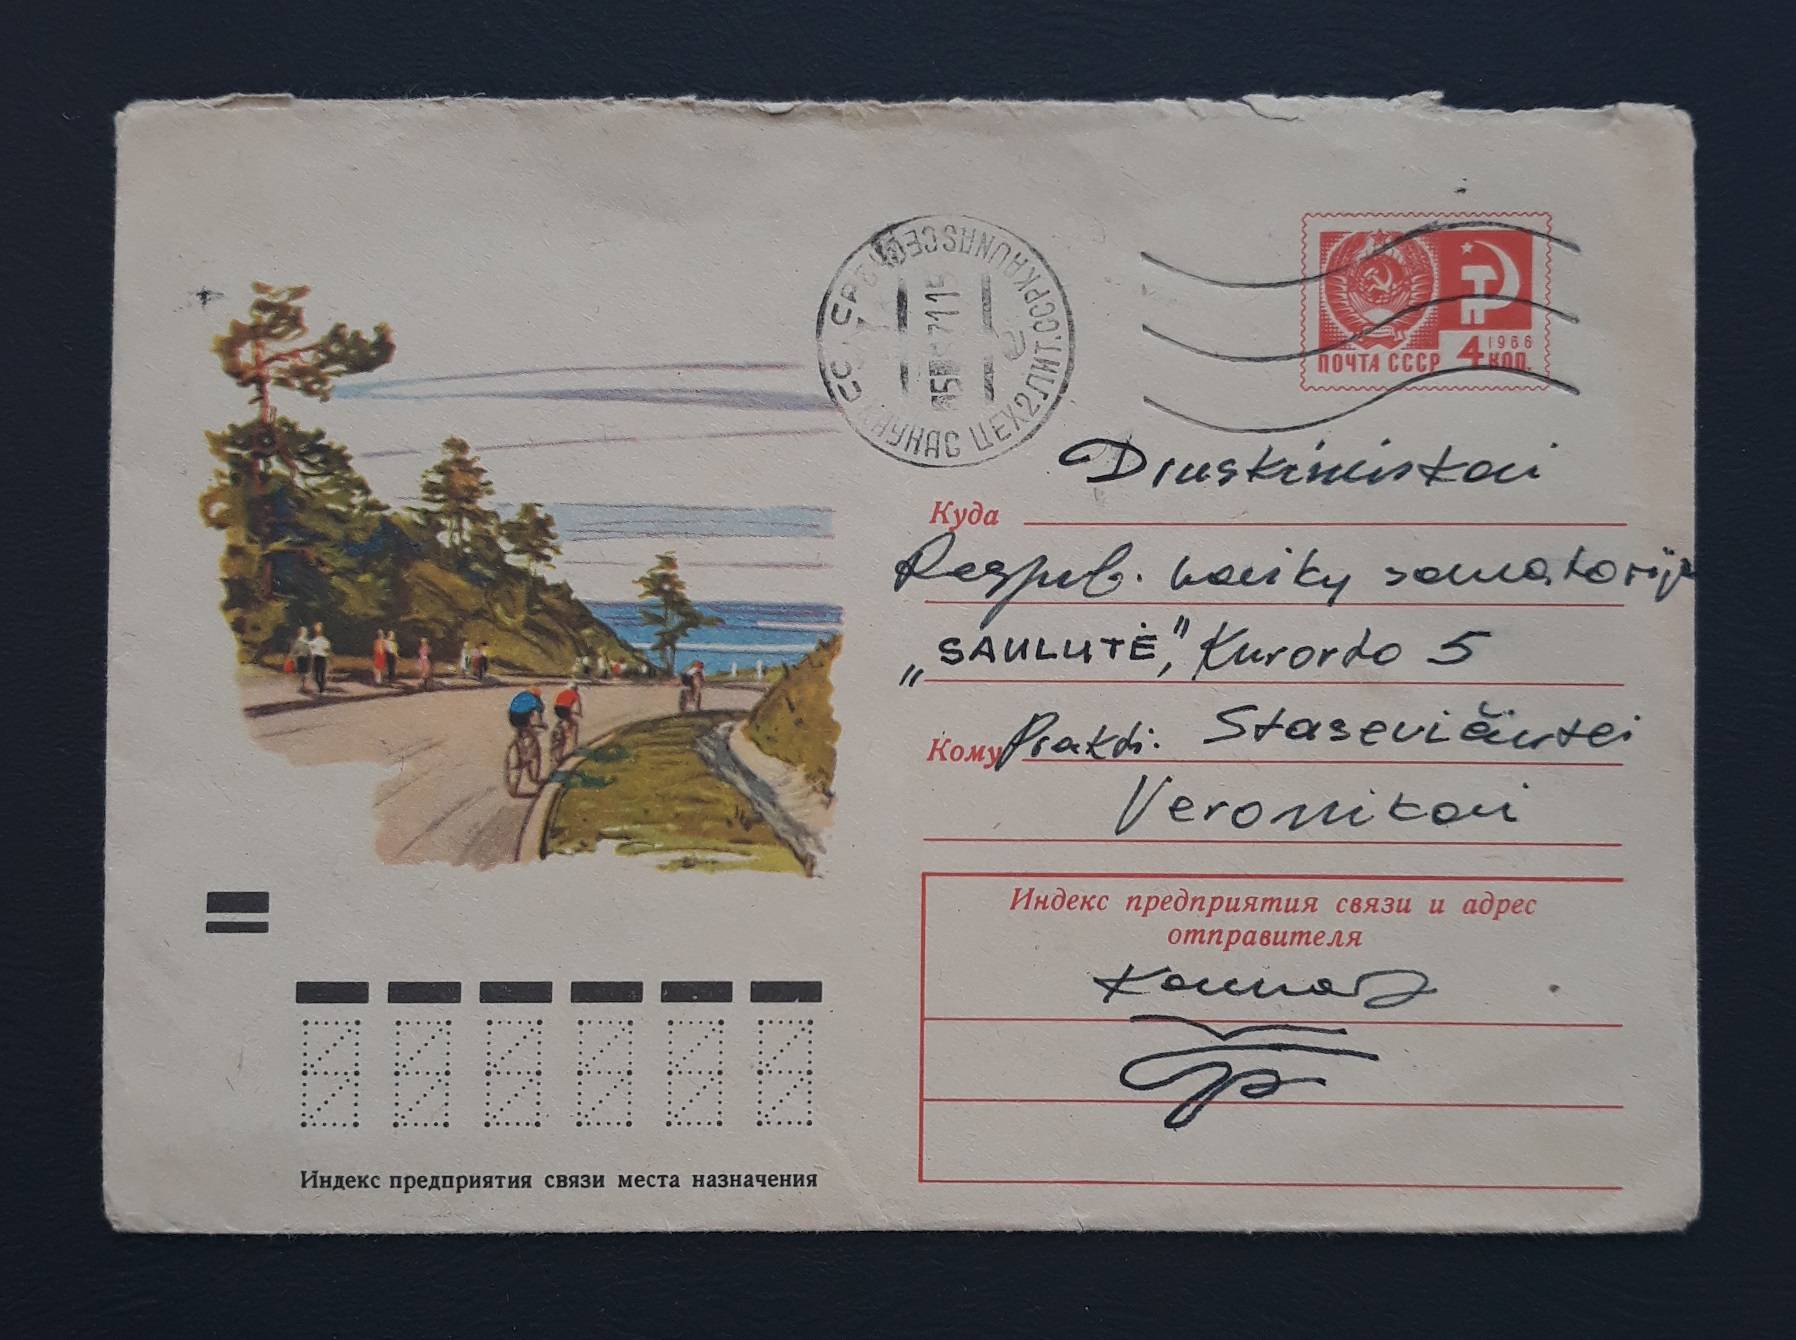 КАУНАС ЦЕХ 2 ЛИТ. ССР KAUNAS CECH
15
1966
ПОЧТА СССР 4 КОП.
Druskininkai
Куда
Respub. vaikų sanatorija
„SAULUTĖ”, Kurorto 5
Кому Prakti. Stasevičiūtei
Veronikai
Индекс предприятия связи и адрес
отправителя
Kaunas
Индекс предприятия связи места назначения